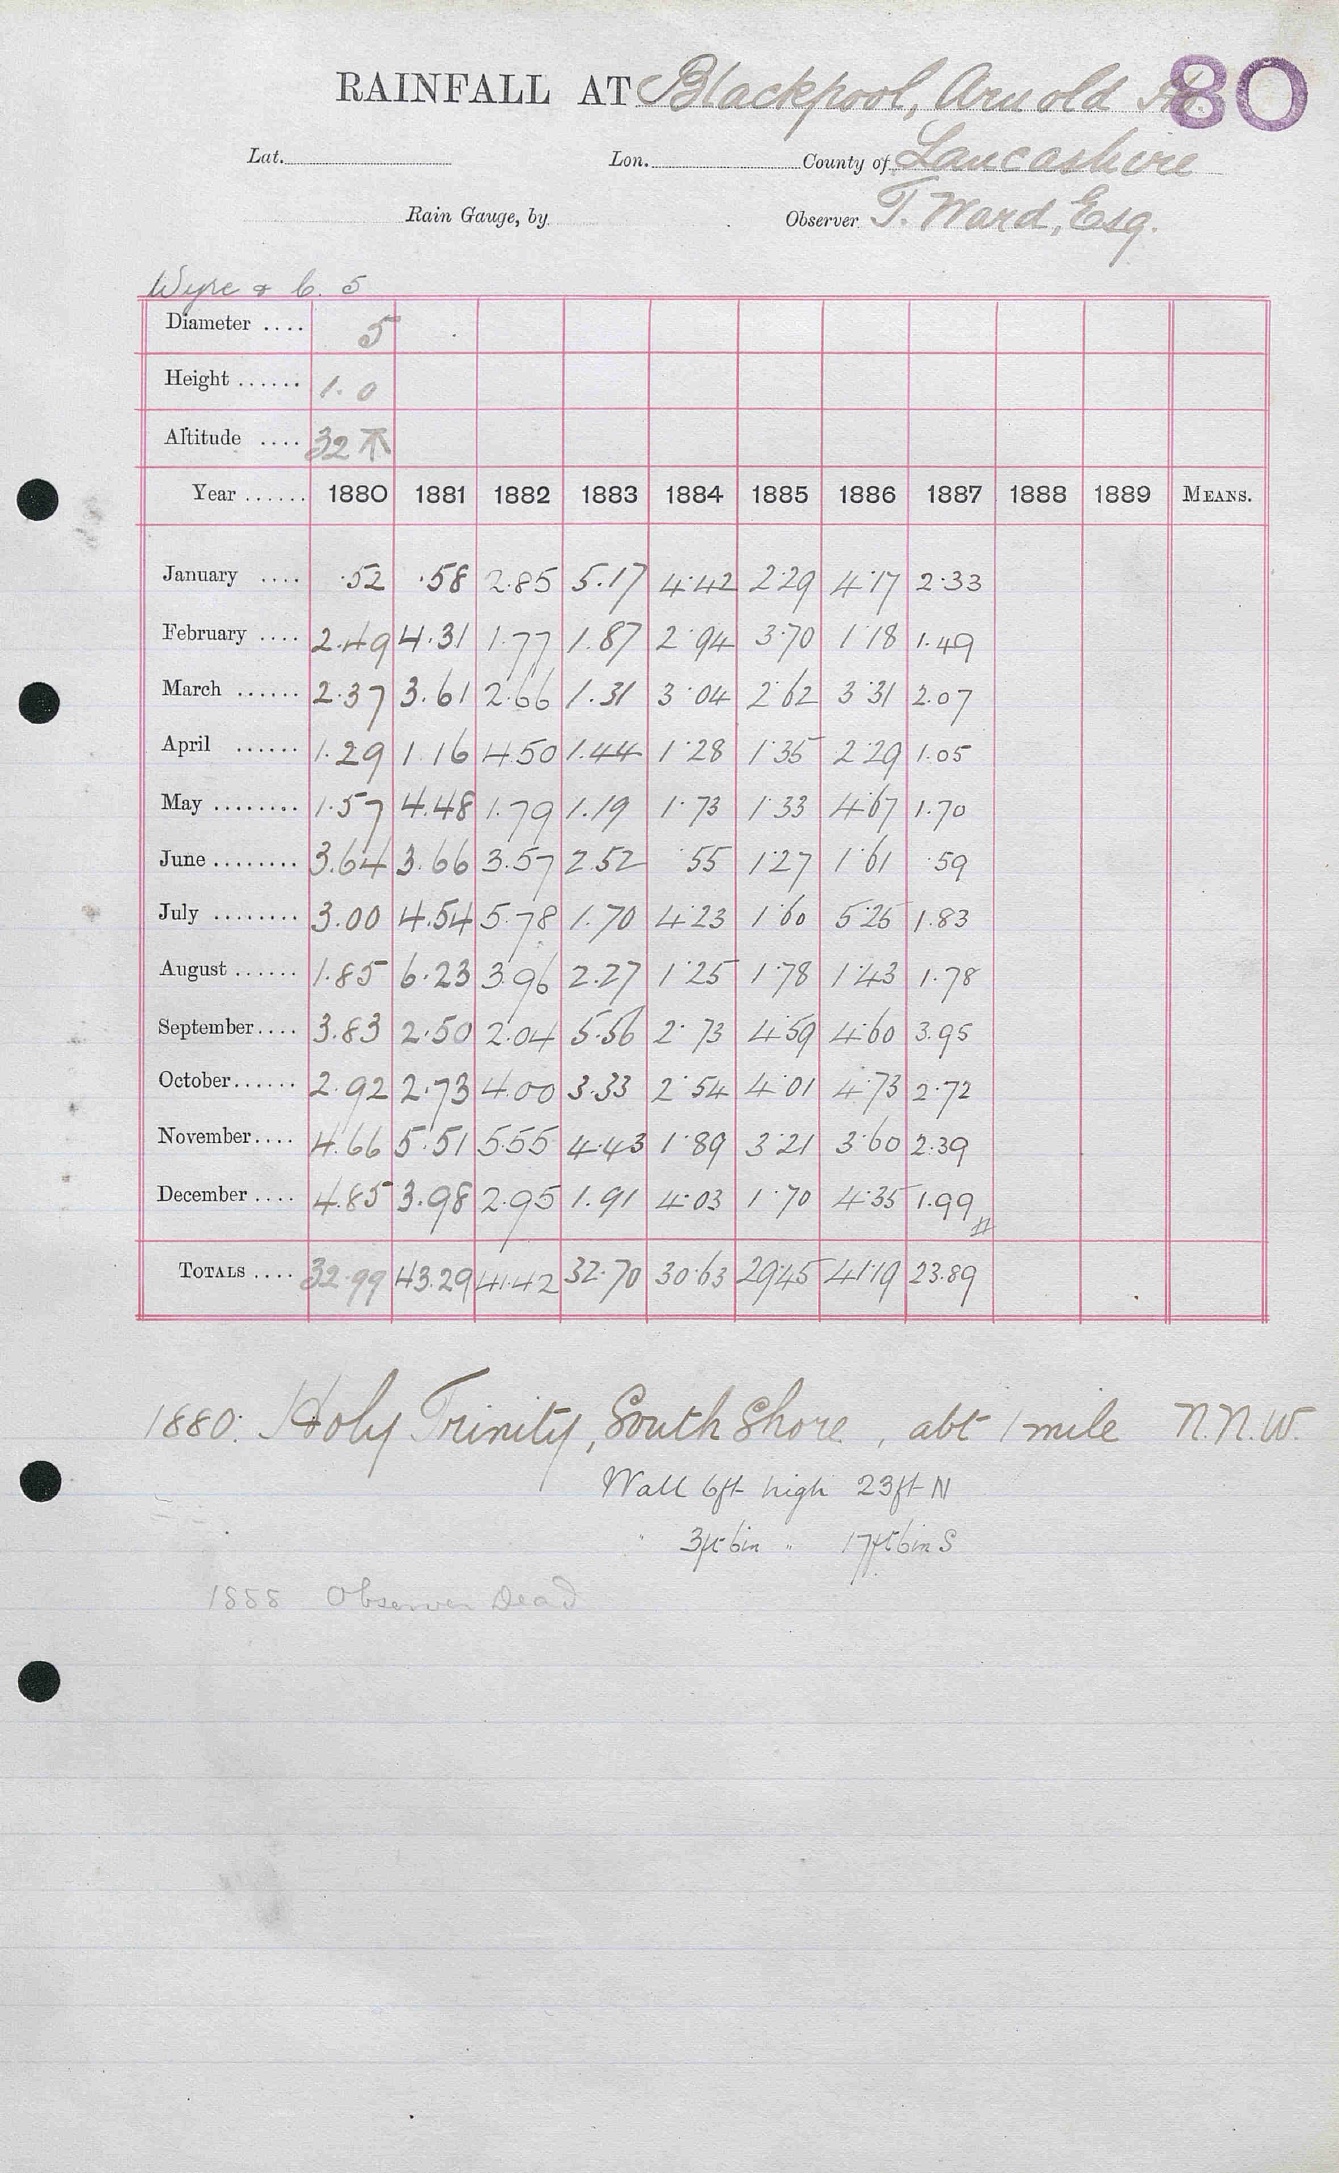 RAINFALL AT Blackpool, Arnold Ho. 80
Lat. Lon. County of Lancashire
Rain Gauge, by Observer T. Ward, Esq.
Wyre & C. 5
Diameter .... 5
Height ...... 1.0
Altitude .... 32
Year ...... 1880 1881 1882 1883 1884 1885 1886 1887 1888 1889 MEANS.
January .... .52 .58 2.85 5.17 4.42 2.29 4.17 2.33
February .... 2.49 4.31 1.77 1.87 2.94 3.70 1.18 1.49
March ...... 2.37 3.61 2.66 1.31 3.04 2.62 3.31 2.07
April ...... 1.29 1.16 4.50 1.44 1.28 1.35 2.29 1.05
May ........ 1.57 4.48 1.79 1.19 1.73 1.33 4.67 1.70
June ........ 3.64 3.66 3.57 2.52 .55 1.27 1.61 .59
July ........ 3.00 4.54 5.78 1.70 4.23 1.60 5.25 1.83
August ...... 1.85 6.23 3.96 2.27 1.25 1.78 1.43 1.78
September .... 3.83 2.50 2.04 5.56 2.73 4.59 4.60 3.95
October ...... 2.92 2.73 4.00 3.33 2.54 4.01 4.73 2.72
November .... 4.66 5.51 5.55 4.43 1.89 3.21 3.60 2.39
December .... 4.85 3.98 2.95 1.91 4.03 1.70 4.35 1.99
TOTALS .... 32.99 43.29 41.42 32.70 30.63 29.45 41.19 23.89
1880: Holy Trinity, South Shore, abt 1 mile N.N.W.
Wall 6ft high 23ft N
" 3ft 6in " 17ft 6in S
1888 Observer Dead